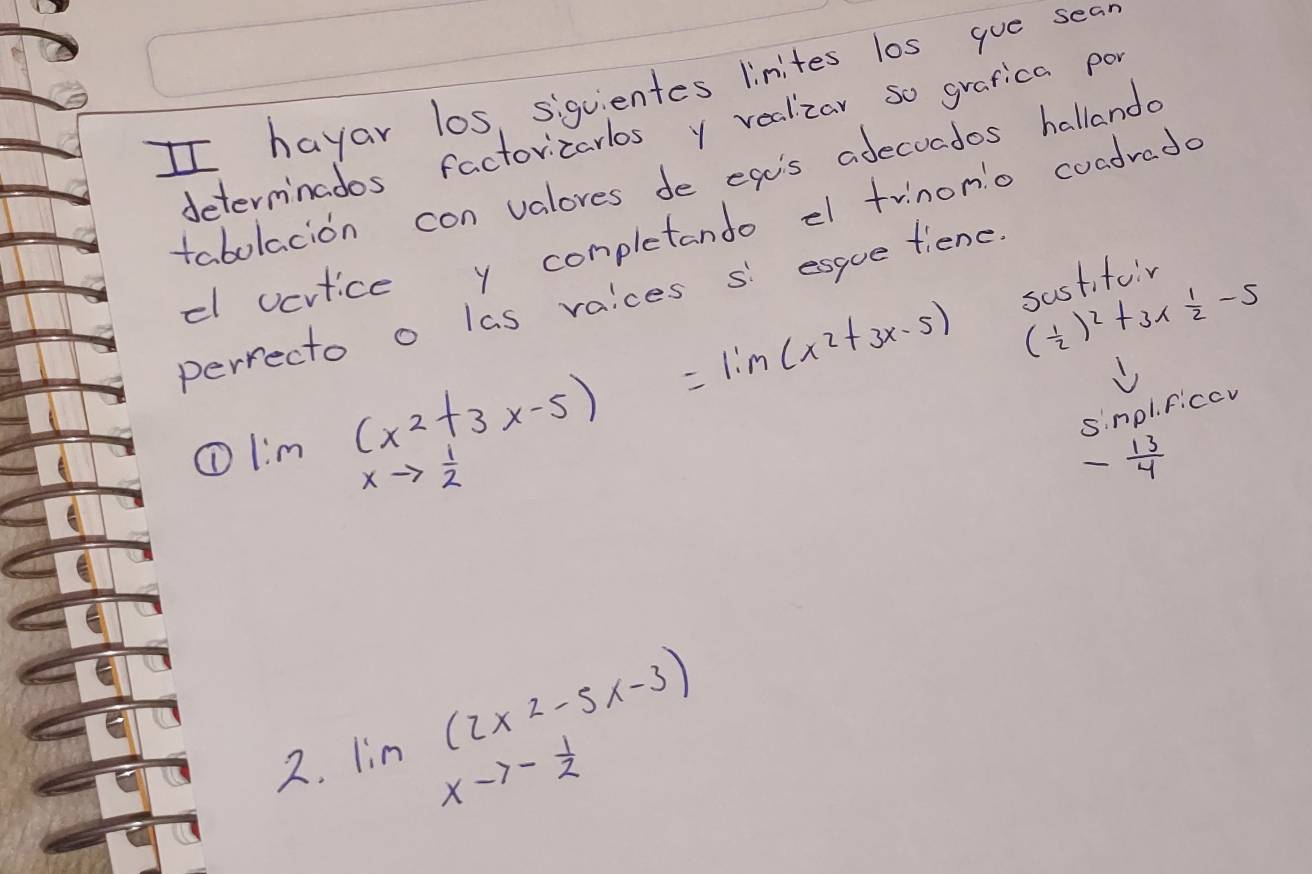 II hayar los siguientes limites los que sean
determinados factorizarlos y realizar so grafica por
tabulación con valores de equis adecuados hallando
el vertice y completando el trinomio cuadrado
perfecto o las raices si esque tiene.
① lim (x² + 3x - 5) = lim (x² + 3x - 5) sustituir
x → 1/2 (1/2)² + 3x 1/2 - 5
↓
simplificar
- 13/4
2. lim (2x² - 5x - 3)
x → - 1/2